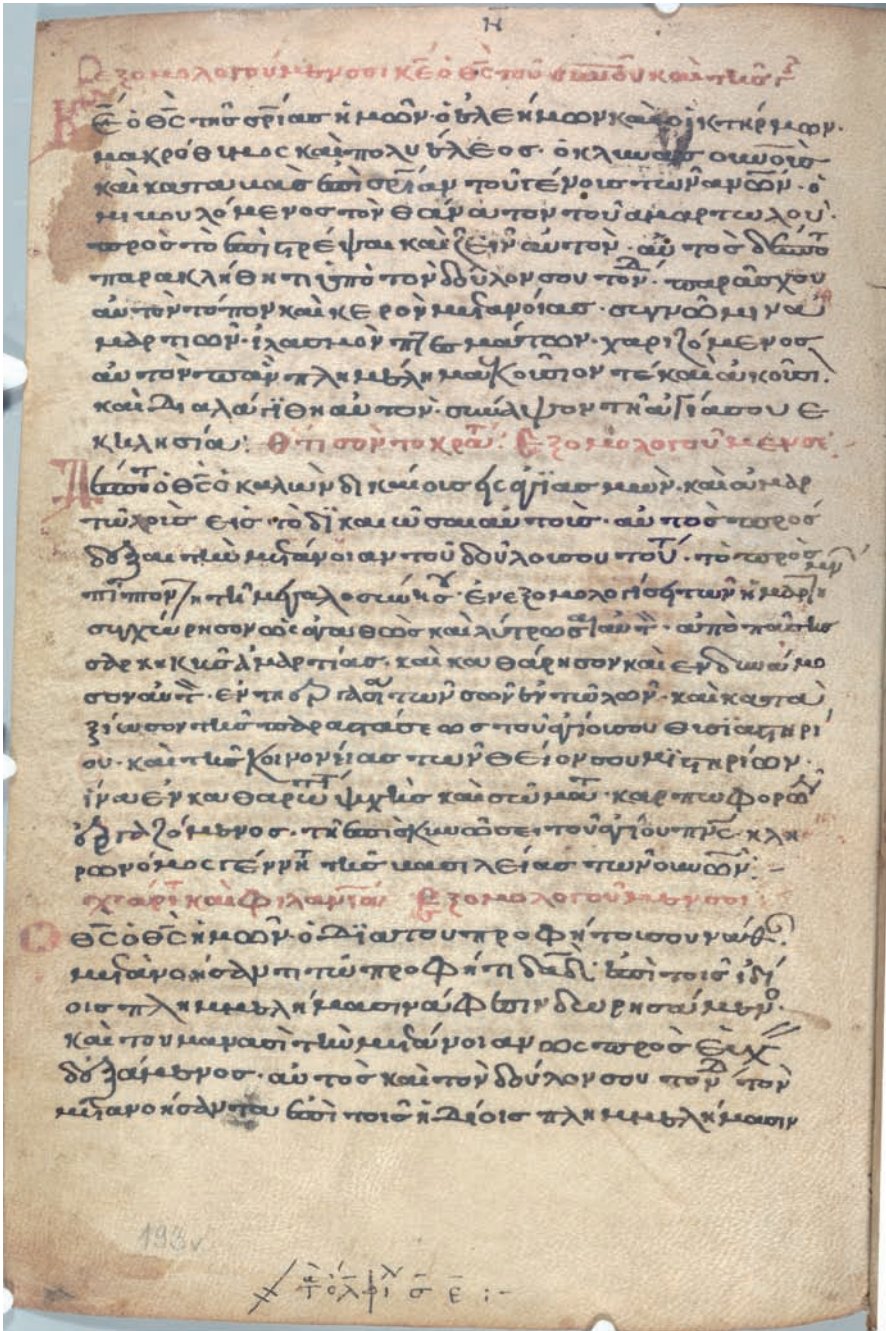 η
ἐξομολογουμένοσι κε ὁ θς τοῦ
κε ὁ θς τῆς σρίας ἡμῶν· ὁ ἐλεήμων καὶ οἰκτήρμων·
μακρόθιμος καὶ πολυέλεος· ὁ κλινας οὐνοὶς
καὶ καταυας ἐπὶ σρίαν τοῦ γένοις τῶν ανων· ὁ
μι μουλόμενος τὸν θάνατον τοῦ αμαρτωλοῦ·
προς τὸ ἐπιστρέψαι καὶ ζεῖν αυτον· αὐτὸς
παρακλήθητι ὑπὸ τὸν δοῦλον σου τὸν δ· παράσχου
αυτον τόπον καὶ κερὸν μετανοίας· συγνῶμιν α
μαρτιῶν· ἱλασμὸν πτεσμάτων· χαριζόμενος
αυτὸν πᾶν πλημέλημα ἑκοισιον τὲ καὶ ἀκοῦσι
καὶ διαλάγϊθη αυτον· σινάψον τῆ ἁγία σου ε
κλησία: ὅτι σὸν τὸ κρά ἐξομολογοῦμενσι
Δέσποτ ὁ θς ὁ καλῶν δικαίοισ εἰς ἁγϊασμὼν· καὶ ἁμαρ
τωλοῖς εἰς τὸ δικαιῶσαι αυτοῖς· αὐτὸς προσ
δέξαι τὴν μετάνοιαν τοῦ δοῦλοι σου τοῦ· τὸ προσ
πίπτον τῆ μεγαλοσίνη σου· ἐν ἐξομολογίσει τῶν ἡμαρ
συγχώρησον ὡς ἀγαθὸς καὶ λύτρωσαι αὐτ ἀπὸ πάσις
σαρκηκῆς ἁμαρτίας· καὶ καθάρησον καὶ ἐνδινάμο
σον αὐτ· ἐν τῆ ἐργασία τῶν σῶν ἐντωλῶν· καὶ κατα
ξίωσον τῆς παραστάσεως τοῦ ἁγίοι σου θισϊαστηρί
ου· καὶ τῆς κοινονίας τῶν θείον σου μϊστηρίων·
ἵνα ἐν καθαρωτ ψχῆς καὶ σώματ· καρπωφορῶν
ἐργαζόμενος· τῆ ἐπισκινώσει τοῦ ἁγίου πνς· κλη
ρωνόμος γέννητ τῆς μασιλείας τῶν οινων:-
χάριτ καὶ φιλανία ἐξομολογοῦμενσοι:
Ὁ θς ὁ θς ἡμῶν· ὁ δϊα τοῦ προφήτοι σου νάθ
μετανοήσαντι τῶ προφήτι δαδ· ἐπὶ τοῖς ἰδί
οις πλημμελήμασιν ἄφεσιν δωρησάμεν·
καὶ τοῦ μανασὶ τὴν μετάνοιαν ὡς προσευχ
δεξάμενος· αὐτὸς καὶ τὸν δοῦλον σου τὸν δ τὸν
μετανοήσαντα ἐπὶ τοῖς ἡδίοις πλημμελήμασιν
193v